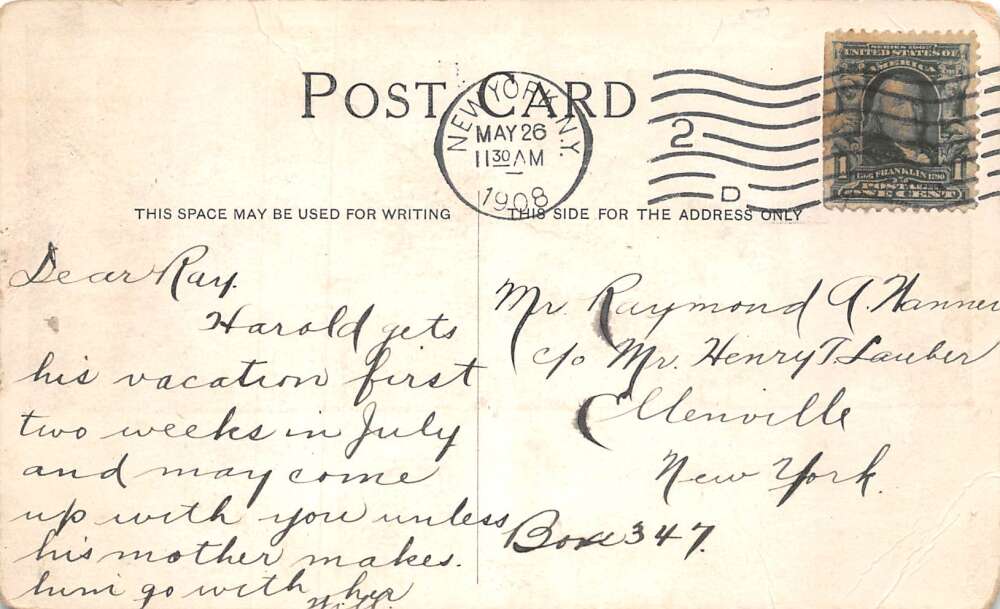 POST CARD
NEW YORK, N.Y.
MAY 26
11 30 AM
1908
2
D
SERIES 1902
UNITED STATES OF
AMERICA
1 FRANKLIN 1790 1
POSTAGE
ONE CENT
THIS SPACE MAY BE USED FOR WRITING
THIS SIDE FOR THE ADDRESS ONLY
Dear Ray.
Harold gets
his vacation first
two weeks in July
and may come
up with you unless
his mother makes.
him go with her
Will.
Mr. Raymond A. Hanner
c/o Mr. Henry T. Lauber
Ellenville
New York.
Box 347.